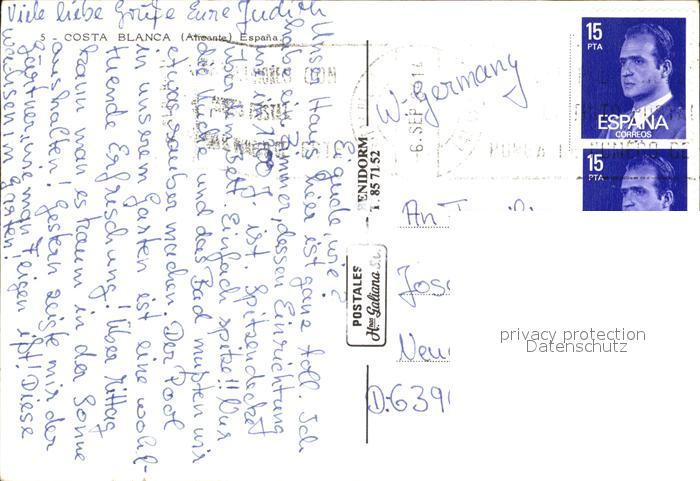 Viele liebe Grüße Eure Judith
5 - COSTA BLANCA (Alicante) España.
Unser Haus hier ist ganz toll. Ich
habe ein Zimmer, dessen Einrichtung
ist. Spitzendecke
überm Bett. Einfach spitze!! Nur
die Küche und das Bad mußten wir
etwas sauber machen. Der Pool
in unserem Garten ist eine wohl-
tuende Erfrischung! Über Mittag
kann man es kaum in der Sonne
aushalten! Gestern zeigte mir der
Gärtner, wie man Feigen ißt! Diese
wachsen im Garten!
BENIDORM
T. 85 71 52
POSTALES
Hnos Galiana S.L.
6. SEP
W-Germany
An
Jose
Neu
D-639
15
PTA
ESPAÑA
CORREOS
15
PTA
privacy protection
Datenschutz